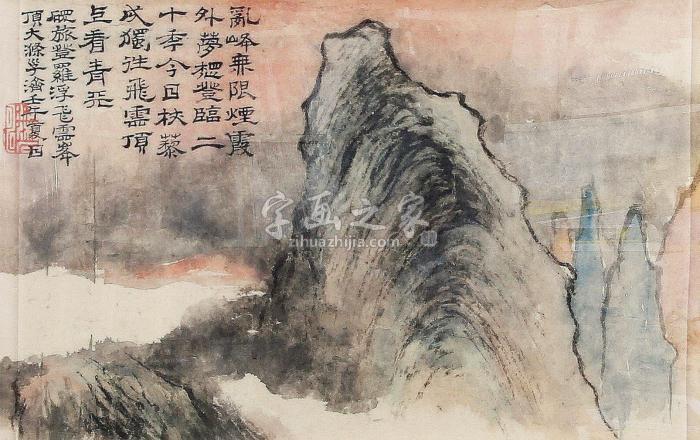 亂峰無限煙霞
外夢想登臨二
十季今日杖藜
成獨往飛雲頂
上看青天
旅登羅浮飛雲峯
頂大滌子濟夏日
字画之家
zihuazhijia.com